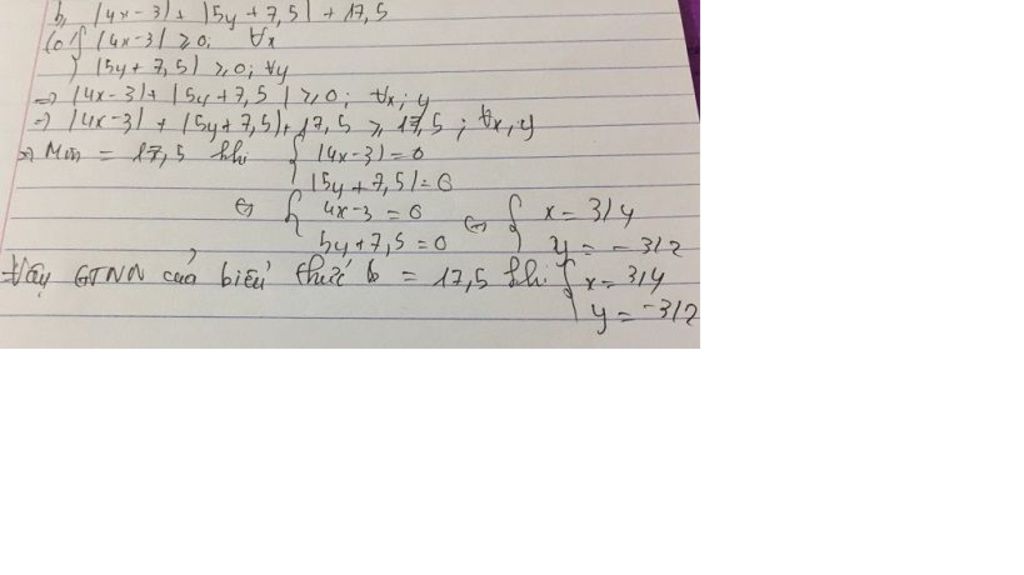 b, |4x - 3| + |5y + 7,5| + 17,5
Có { |4x - 3| ≥ 0; ∀x
|5y + 7,5| ≥ 0; ∀y
=> |4x - 3| + |5y + 7,5| ≥ 0; ∀x; y
=> |4x - 3| + |5y + 7,5| + 17,5 ≥ 17,5; ∀x, y
=> Min = 17,5 khi { |4x - 3| = 0
|5y + 7,5| = 0
⇔ { 4x - 3 = 0 ⇔ { x = 3/4
5y + 7,5 = 0 y = - 3/2
Vậy GTNN của biểu thức b = 17,5 khi { x = 3/4
y = -3/2